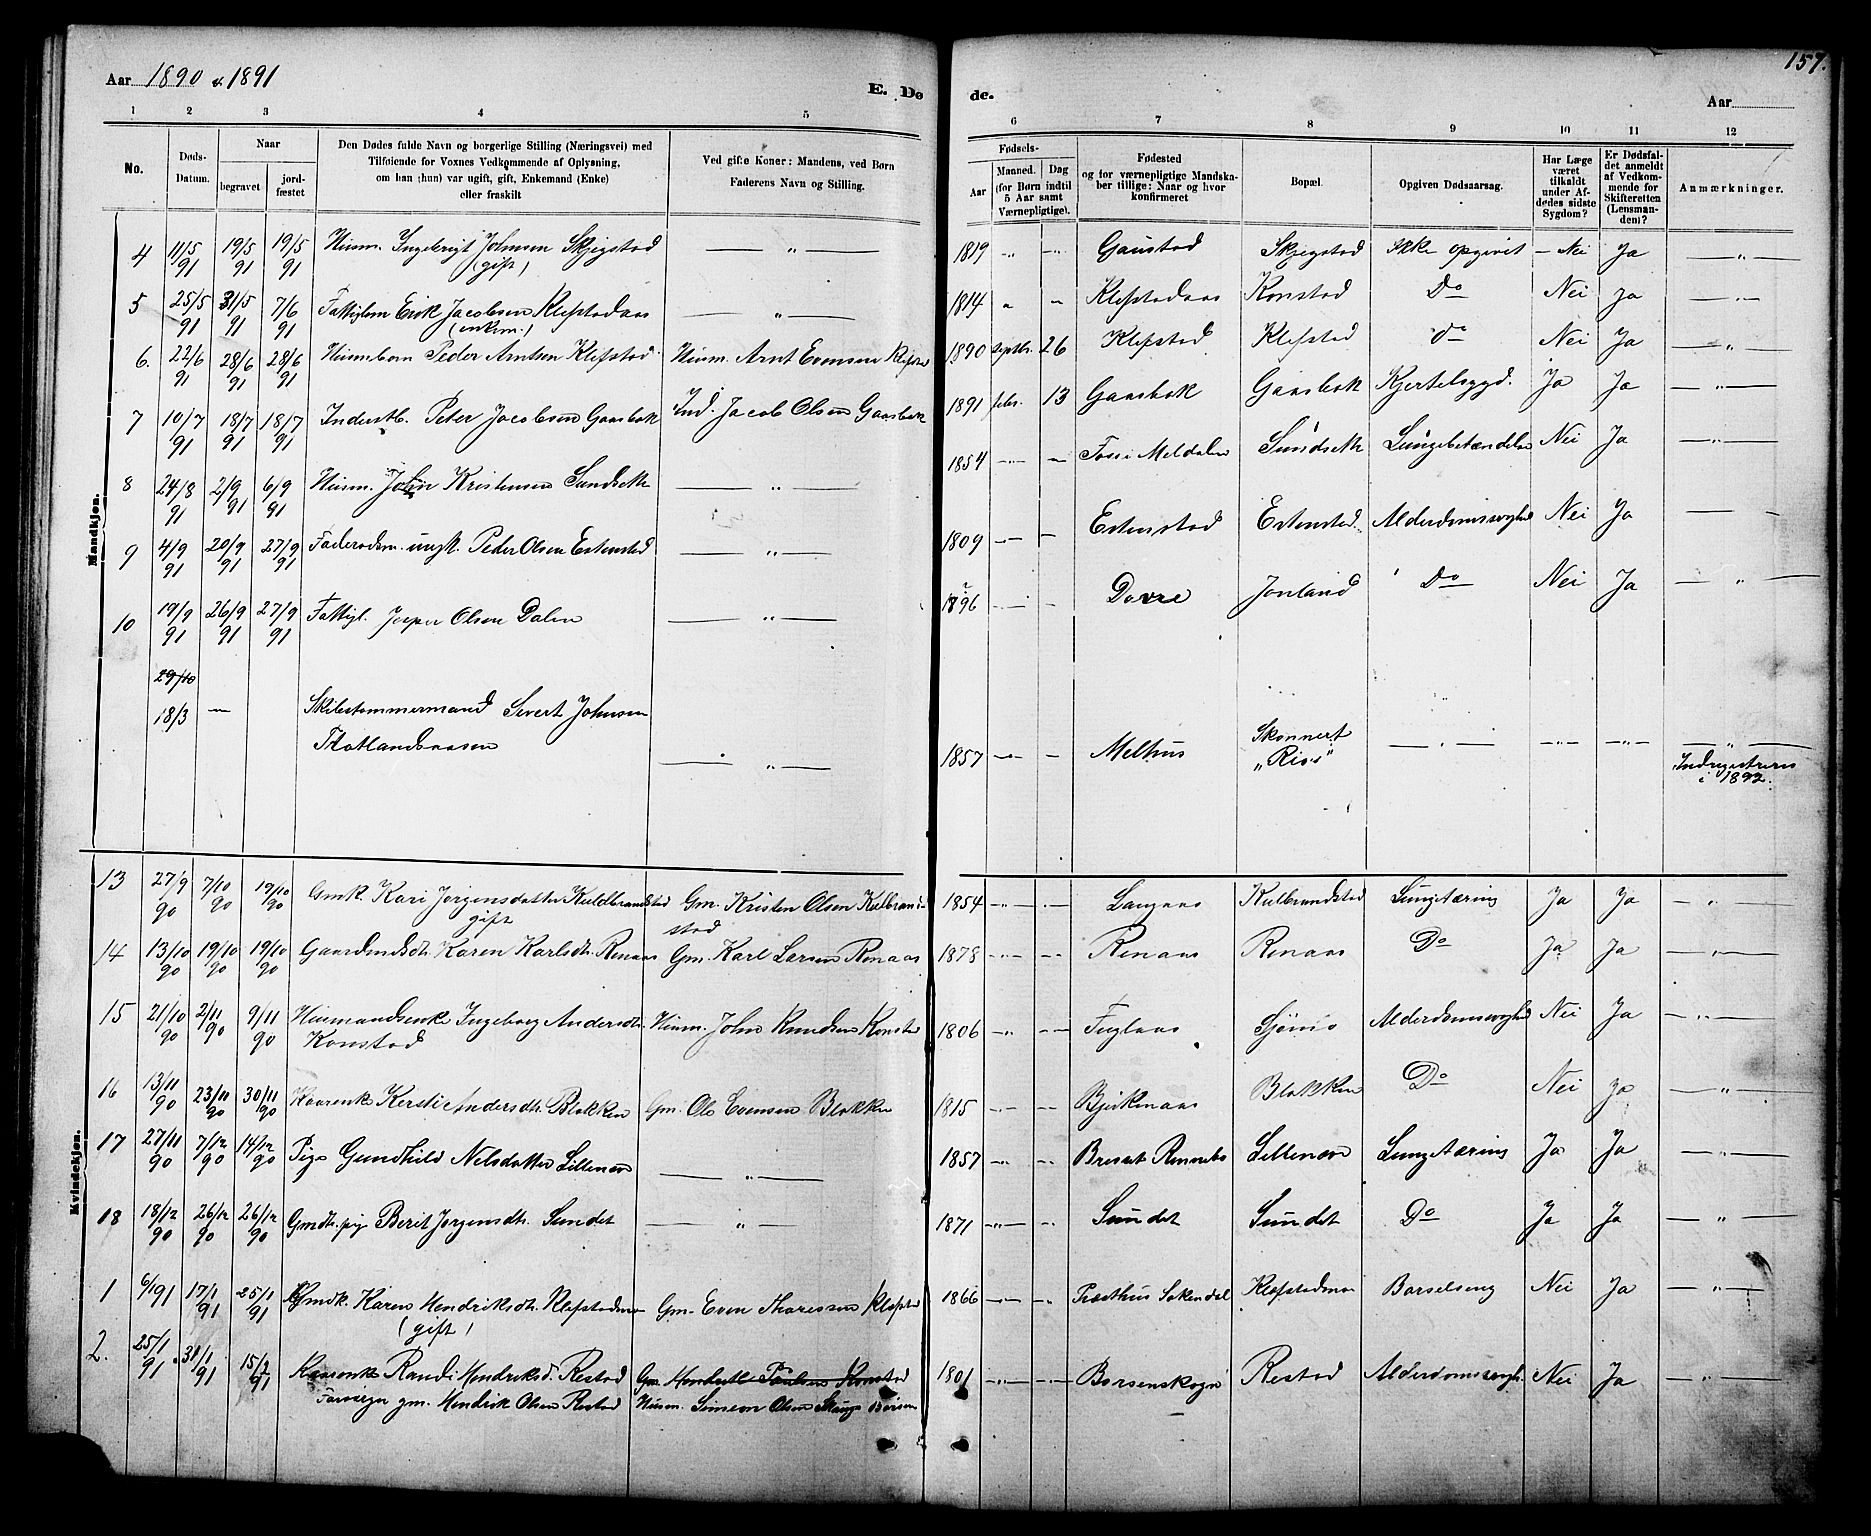 157.
Aar 1890 & 1891 E. Dø de. Aar
1 2 3 4 5 6 7 8 9 10 11 12
No. Døds-Datum. Naar begravet jordfæstet
Den Dødes fulde Navn og borgerlige Stilling (Næringsvei) med Tilføiende for Voxnes Vedkommende af Oplysning, om han (hun) var ugift, gift, Enkemand (Enke) eller fraskilt
Ved gifte Koner: Mandens, ved Børn Faderens Navn og Stilling.
Fødsels- Aar Maaned. Dag (for Børn indtil 5 Aar samt Værnepligtige).
Fødested og for værnepligtige Mandskaber tillige: Naar og hvor konfirmeret
Bopæl.
Opgiven Dødsaarsag.
Har Læge været tilkaldt under Afdødes sidste Sygdom?
Er Dødsfaldet anmeldt af Vedkommende for Skifteretten (Lensmanden)?
Anmærkninger.
Mandkjøn.
4 11/5 91 19/5 91 19/5 91 Husm. Ingebrigt Johnsen Skjegstad (gift) — " — 1819 Gaustad Skjegstad Ikke opgivet Nei Ja — " —
5 25/5 91 31/5 91 7/6 91 Fattiglem Erik Jacobsen Klefstadaas (enkem.) — " — 1814 Klefstadaas Konstad Do Nei Ja — " —
6. 22/6 91 28/6 91 28/6 91 Husmebarn Peder Arntsen Klefstad Husm. Arnt Evensen Klefstad 1890 Septbr. 26 Klefstad Klefstad do Nei Ja — " —
7 10/7 91 18/7 91 18/7 91 Inderstb. Peter Jacobsen Gaasbak Ind. Jacob Olsen Gaasbak 1891 febr. 13 Gaasbak Gaasbak Kjertelsygd. Ja Ja — " —
8 24/8 91 2/9 91 6/9 91 Husm. John Kristensen Sundseth — " — 1854 Foss i Meldalen Sundseth Lungebetændelse Nei Ja — " —
9 4/9 91 20/9 91 27/9 91 Føderaadsm. ungk. Peder Olsen Estenstad — " — 1809 Estenstad Estenstad Alderdomssvaghed Nei Ja
10 19/9 91 26/9 91 27/9 91 Fattigl. Jesper Olsen Dalen — " — 1796 Dovre Jonland Do Nei Ja — " —
29/10
18/3 — Skibstømmermand Sivert Johnsen Flotlandsaasen — " — 1857 Melhus Skonnert „Rios" — " — Indregistreres i 1892.
Kvindekjøn.
13 27/9 90 7/10 90 19/10 90 Gmk. Kari Jørgensdatter Kuldbrandstad gift Gm. Kristen Olsen Kulbrandstad 1854 Langaas Kulbrandstad Lungetæring Ja Ja — " —
14 13/10 90 19/10 90 19/10 90 Gaardmdsdtr. Karen Karlsdtr. Renaas Gm. Karl Larsen Renaas 1878 Renaas Renaas Do Ja Ja — " —
15 21/10 90 2/11 90 9/11 90 Husmandsenke Ingeborg Andersdtr. Konstad Husm. John Knudsen Konstad 1806 Fuglaas Alderdomssvaghed Nei Ja — " —
16 13/11 90 23/11 90 30/11 90 Kaarenke Kersti Andersdtr. Blokken Gm. Ole Evensen Blokken 1815 Bjerkenaas Blokken Do Nei Ja — " —
17 27/11 90 7/12 90 14/12 90 Pige Gundhild Nelsdatter Lillenæs — " — 1857 Lillenæs Lungetæring Ja Ja — " —
18 18/12 90 26/12 90 26/12 90 Gmdtr. pige Berit Jørgensdtr. Sundet — " — 1871 Sundet Sundet Do Ja Ja — " —
1 6/1 91 17/1 91 25/1 91 Gmdk. Karen Hendriksdtr. Klefstadmo (gift) Gm. Even Tharesen Klefstad 1866 Klefstadmo Barselseng Nei Ja — " —
2. 25/1 91 31/1 91 15/2 91 Kaarenke Randi Hendriksd. Restad Gm. Hendrik Paulsen Konstad 1801 Børsenskogn Restad Alderdomssvagh. Nei Ja — " —
gm. Hendrik Olsen Restad Husm. Simeon Olsen Skaug Børsen